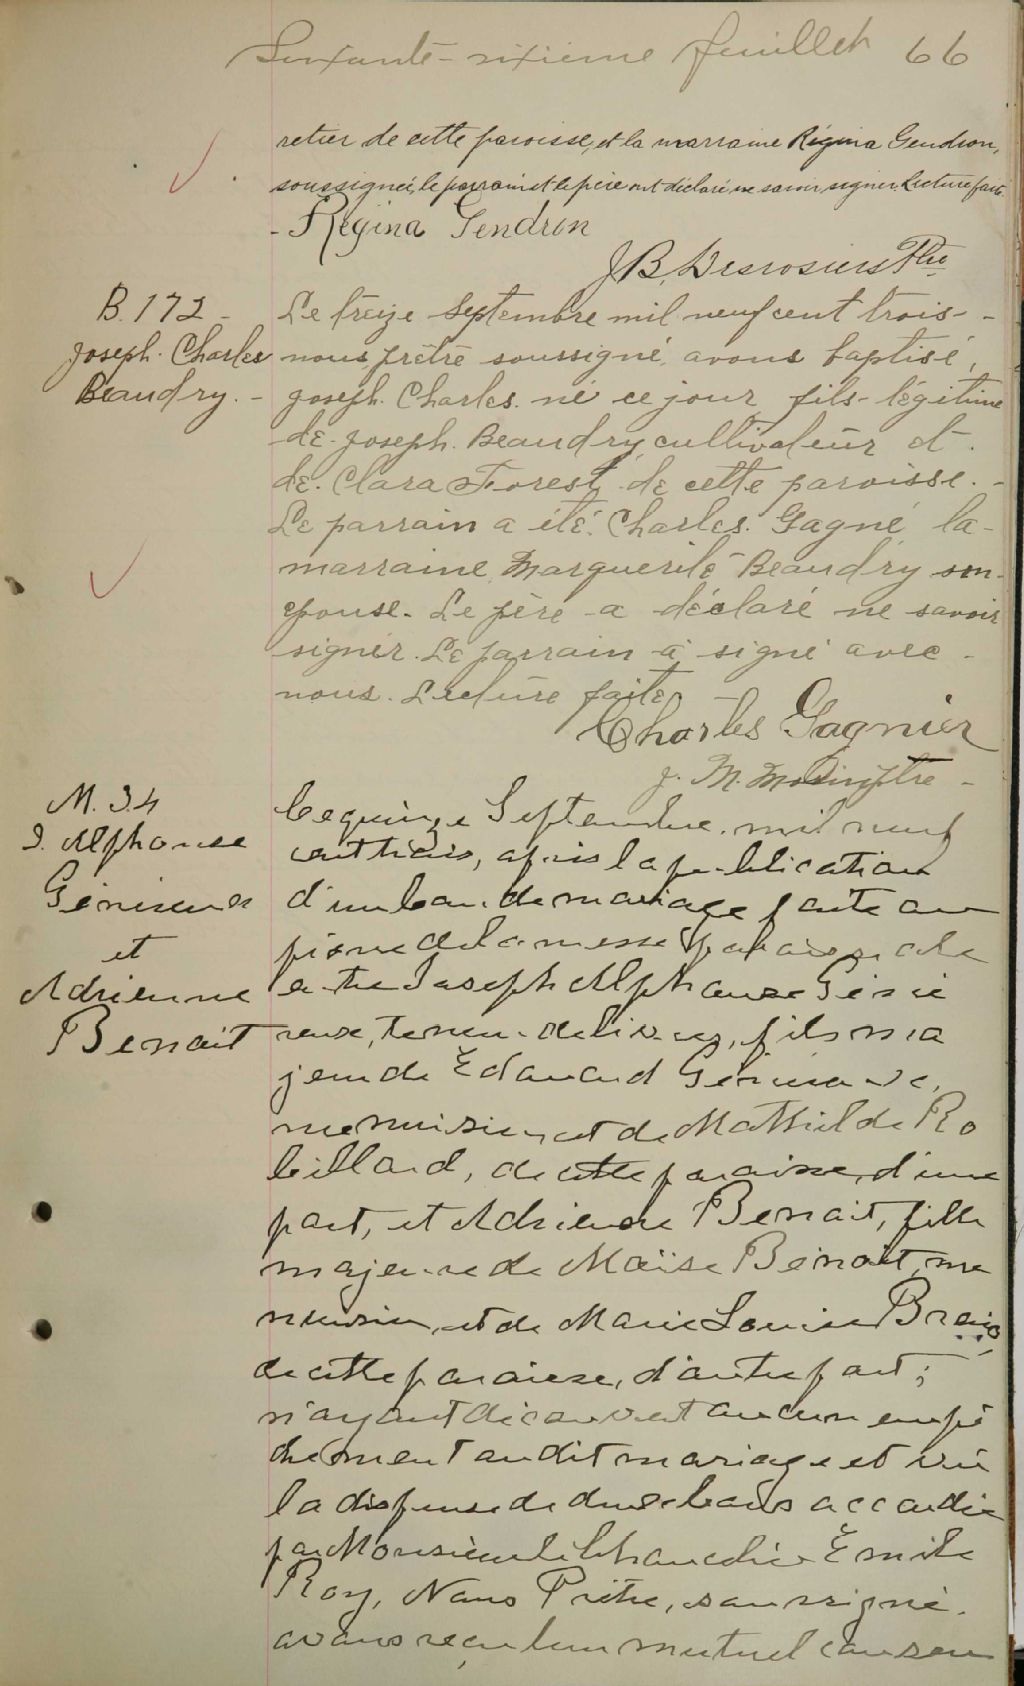 Soixante-sixième feuillet 66
retier de cette paroisse, et la marraine Régina Gendron,
soussignée, le parrain et le père ont déclaré ne savoir signer. Lecture faite.
- Régina Gendron
J.B. Desrosiers Ptre
B. 172 -
Joseph. Charles
Beaudry. -
Le treize Septembre mil neuf cent trois -
nous prêtre soussigné, avons baptisé,
Joseph. Charles. né ce jour fils légitime
de Joseph. Beaudry, cultivateur et
de. Clara Forest, de cette paroisse. -
Le parrain a été. Charles. Gagné la
marraine Marguerite Beaudry son
épouse. Le père a déclaré ne savoir
signer. Le parrain a signé avec
nous. Lecture faite -
Charles Gagnier
J. M. ptre -
M. 34
J. Alphonse
Généreux
et
Adrienne
Benoit
Le quinze Septembre, mil neuf
cent trois, après la publication
d'un ban de mariage faite au
prône de la messe paroissiale
entre Joseph Alphonse Géné
reux, teneur de livres, fils ma
jeur de Edouard Généreux,
menuisier, et de Mathilde Ro
billard, de cette paroisse, d'une
part, et Adrienne Benoit, fille
majeure de Moïse Benoit, me
nuisier, et de Marie Louise
de cette paroisse, d'autre part;
n'ayant découvert aucun empê
chement au dit mariage et vu
la dispense de deux bans accordée
par Monsieur le Chanoine Emile
Roy, Nous Prêtre, soussigné.
avons reçu leur mutuel consen